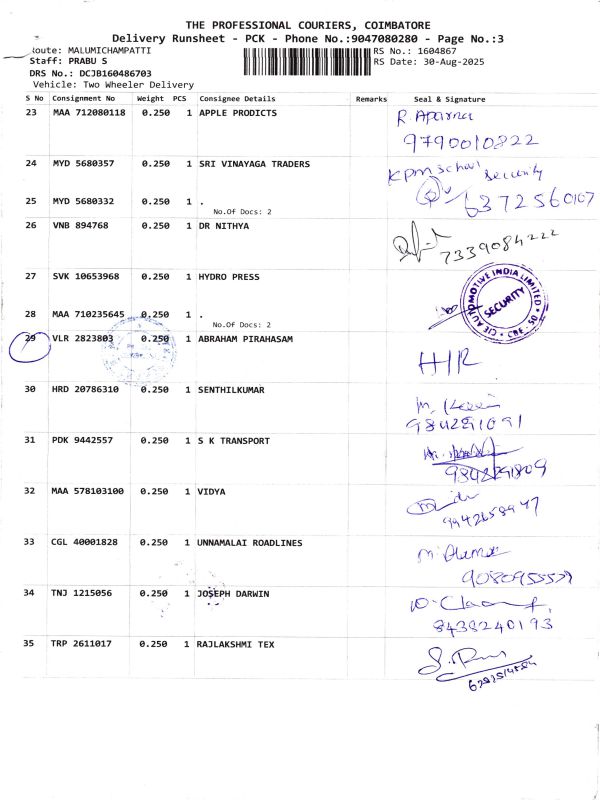 THE PROFESSIONAL COURIERS, COIMBATORE
Delivery Runsheet - PCK - Phone No.:9047080280 - Page No.:3
Route: MALUMICHAMPATTI RS No.: 1604867
Staff: PRABU S RS Date: 30-Aug-2025
DRS No.: DCJB160486703
Vehicle: Two Wheeler Delivery
S No Consignment No Weight PCS Consignee Details Remarks Seal & Signature
23 MAA 712080118 0.250 1 APPLE PRODICTS R. Aparna
9790010822
24 MYD 5680357 0.250 1 SRI VINAYAGA TRADERS KPM School Security
25 MYD 5680332 0.250 1 . 6372560107
No.Of Docs: 2
26 VNB 894768 0.250 1 DR NITHYA
7339084222
27 SVK 10653968 0.250 1 HYDRO PRESS
CIE AUTOMOTIVE INDIA LIMITED
SECURITY
28 MAA 710235645 0.250 1 .
No.Of Docs: 2
29 VLR 2823803 0.250 1 ABRAHAM PIRAHASAM
H/R
30 HRD 20786310 0.250 1 SENTHILKUMAR
9842291091
31 PDK 9442557 0.250 1 S K TRANSPORT
9842291809
32 MAA 578103100 0.250 1 VIDYA
9942658947
33 CGL 40001828 0.250 1 UNNAMALAI ROADLINES
34 TNJ 1215056 0.250 1 JOSEPH DARWIN
8438240193
35 TRP 2611017 0.250 1 RAJLAKSHMI TEX